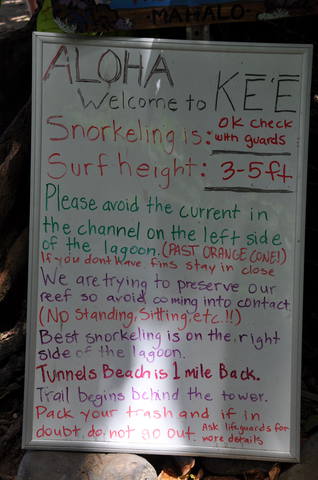 MAHALO
ALOHA
Welcome to KĒ'Ē
Snorkeling is: OK check
with guards
Surf height: 3-5ft
Please avoid the current in
the channel on the left side
of the lagoon. (PAST ORANGE CONE!)
If you dont have fins stay in close
We are trying to preserve our
reef so avoid coming into contact
(No standing, Sitting, etc.!!)
Best snorkeling is on the right
side of the lagoon.
Tunnels Beach is 1 mile Back.
Trail begins behind the tower.
Pack your trash and if in
doubt do not go out. Ask lifeguards for
more details